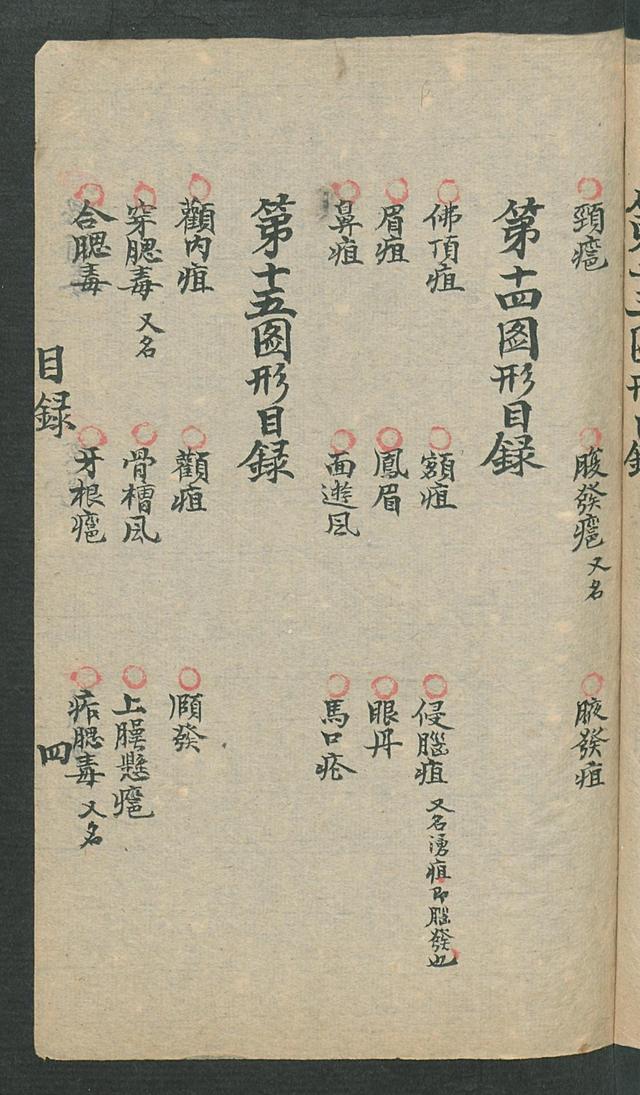 頸癰 腹發癰又名 腋發疽
第十四圖形目録
佛頂疽 額疽 侵腦疽又名湧疽即腦發也
眉疽 鳳眉 眼丹
鼻疽 面遊風 馬口疮
第十五圖形目録
顴内疽 顴疽 頥發
穿腮毒又名 骨槽風 上腭懸癰
合腮毒 牙根癰 痄腮毒又名
目録 四